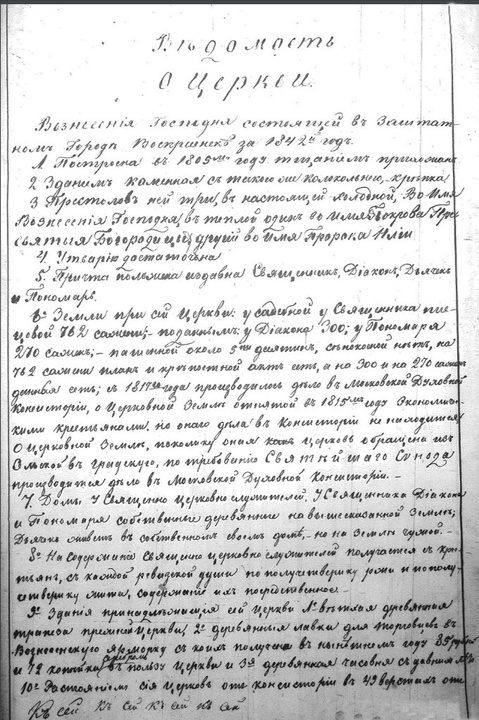 Вѣдомость
О Церкви.
Вознесенія Господня состоящей въ Заштат-
номъ Городѣ Воскресенскѣ за 1842й годъ.
1. Построена въ 1805мъ году тщаніемъ прихожан
2 Зданіемъ каменная съ такою же колокольнею, крѣпка
3 Престоловъ въ ней три, въ настоящей холодной, Во Имя
Вознесенія Господня, въ теплой одинъ во Имя Покрова Пре
святыя Богородицы, другій во Имя Пророка Иліи
4. Утварію достаточна
5. Причта положено издавна Священникъ, Діаконъ, Дьячекъ
и Пономарь.
6е Земли при сей Церкви: усадебной у Священника пис
цовой 762 сажень; у Діакона 300; у Пономаря
270 сажень; пашенной около 5ти десятинъ, сѣнокосной нѣтъ, на
762 сажени планъ и крѣпостной актъ есть, а на 300 и на 270 сажень
данныя есть; съ 1817го года производилось дѣло въ Московской Духовной
Консисторіи, о Церковной Землѣ отнятой въ 1815мъ году Экономичес
кими крестьянами но онаго дѣла въ Консисторіи не находится
О Церковной Землѣ, поколику оная Церковь обращена изъ
въ Градскую, по требованію Святѣйшаго Синода
производится дѣло въ Московской Духовной Консисторіи. -
7 Домы у Священно Церковно служителей. У Священника Діакона
и Пономаря собственные деревянные на вышесказанной Землѣ;
Дьячекъ живетъ въ собственномъ своемъ домѣ, но на Землѣ чужой. -
8е На содержаніе Священно Церковно служителей получается съ кре
стьянъ, съ каждой ревизской души по получетверику ржи и по полу
четверику жита, содержаніе ихъ посредственное. -
9е Зданія принадлежащія сей Церкви 1е ветхая деревянная
трапеза прежней Церкви, 2е деревянныя лавки для торговли въ
Вознесенскую Ярморку съ коихъ получено въ нынѣшнемъ году 85 рублей
и 12 копѣекъ серебромъ въ пользу Церкви и 3е деревянная часовня съ давнихъ
10е Разстояніемъ сія Церковь отъ консисторіи въ 49 верстахъ отъ
Къ сей Къ сей Къ сей Къ сей